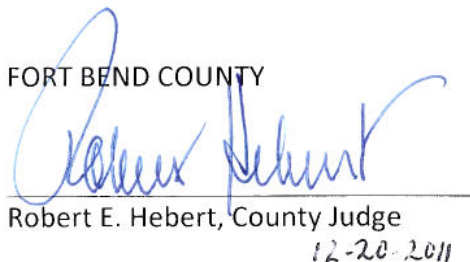 FORT BEND COUNTY
Robert Hebert
Robert E. Hebert, County Judge
12-20-2011